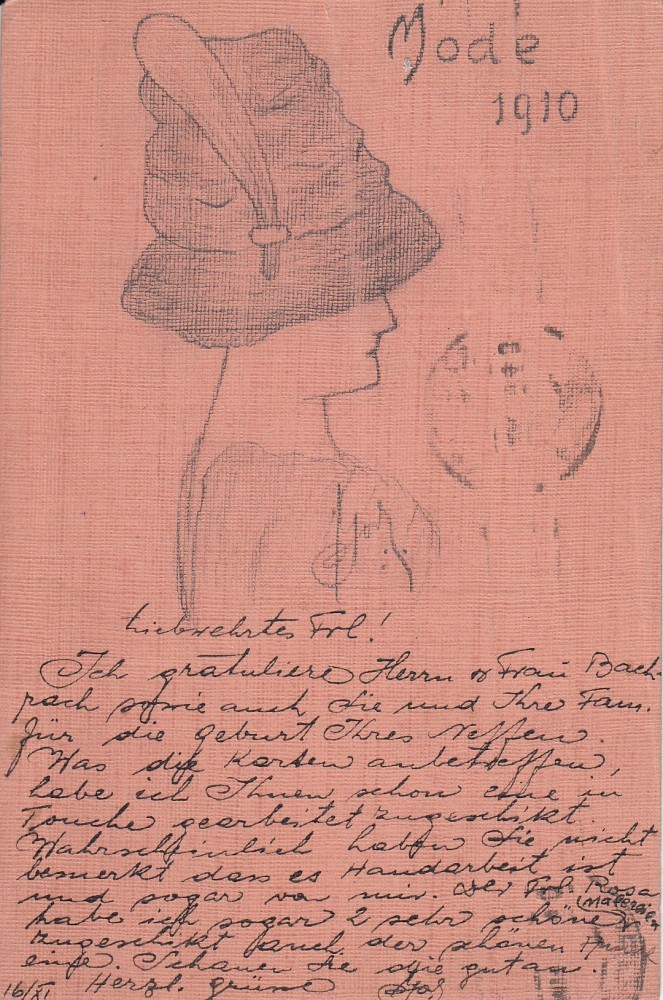 Mode
1910
Liebwehrtes Frl!
Ich gratuliere Herrn & Frau Bach-
rach sowie auch Sie und Ihre Fam.
für die geburt Ihres Neffen.
Was die Karten anbetreffen,
habe ich Ihnen schon eine in
Touche gearbeitet zugeschikt.
Wahrscheinlich haben Sie nicht
bemerkt dass es Handarbeit ist
und sogar von mir. Der Frl. Rosa
habe ich sogar 2 sehr schöne
zugeschikt auch der schönen
eine. Schauen Sie die gut an.
16/XI Herzl. grüsse